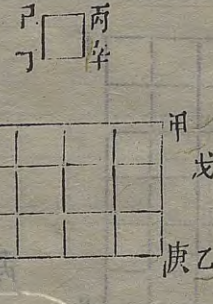 丙
丁 辛
甲
戊
庚乙